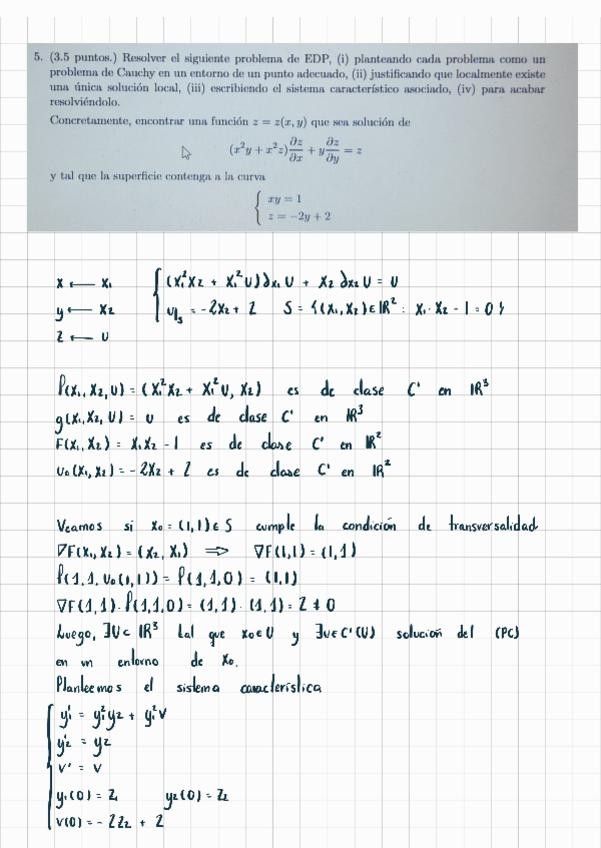 5. (3.5 puntos.) Resolver el siguiente problema de EDP, (i) planteando cada problema como un
problema de Cauchy en un entorno de un punto adecuado, (ii) justificando que localmente existe
una única solución local, (iii) escribiendo el sistema característico asociado, (iv) para acabar
resolviéndolo.
Concretamente, encontrar una función z = z(x, y) que sea solución de
(x²y + x²z) ∂z/∂x + y ∂z/∂y = z
y tal que la superficie contenga a la curva
{ xy = 1
z = −2y + 2
x ⟵ x₁ { (x₁²x₂ + x₁²u)∂x₁u + x₂ ∂x₂u = u
y ⟵ x₂ u|ₛ = -2x₂ + 2 S = {(x₁,x₂) ∈ ℝ² : x₁·x₂ - 1 = 0}
z ⟵ u
f(x₁, x₂, u) = (x₁²x₂ + x₁²u, x₂) es de clase C¹ en ℝ³
g(x₁, x₂, u) = u es de clase C¹ en ℝ³
F(x₁, x₂) = x₁x₂ - 1 es de clase C¹ en ℝ²
u₀(x₁, x₂) = -2x₂ + 2 es de clase C¹ en ℝ²
Veamos si x₀ = (1,1) ∈ S cumple la condición de transversalidad
∇F(x₁, x₂) = (x₂, x₁) ⟹ ∇F(1,1) = (1,1)
f(1,1,u₀(1,1)) = f(1,1,0) = (1,1)
∇F(1,1)·f(1,1,0) = (1,1)·(1,1) = 2 ≠ 0
Luego, ∃U ⊂ ℝ³ tal que x₀ ∈ U y ∃u ∈ C¹(U) solución del (PC)
en un entorno de x₀.
Planteemos el sistema característica
{ y₁' = y₁²y₂ + y₁²v
y₂' = y₂
v' = v
y₁(0) = z₁ y₂(0) = z₂
v(0) = -2z₂ + 2